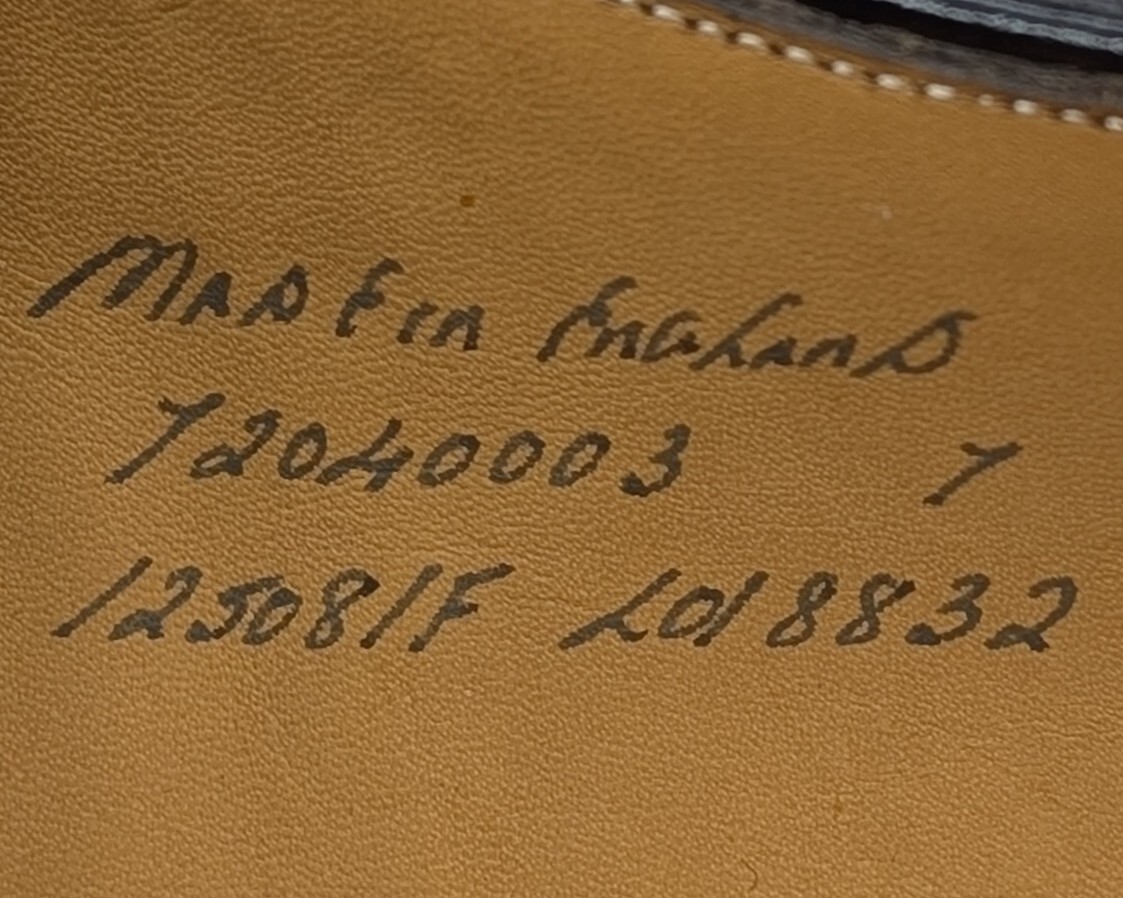 MADE in England
72040003 7
125081F L018832